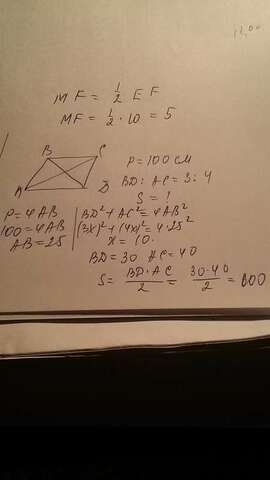 MF = 1/2 EF
MF = 1/2 · 10 = 5
B C
A D
P = 100 см
BD : AC = 3 : 4
S = ?
P = 4AB
100 = 4AB
AB = 25
BD² + AC² = 4AB²
(3x)² + (4x)² = 4·25²
x = 10.
BD = 30 AC = 40
S = BD·AC/2 = 30·40/2 = 600